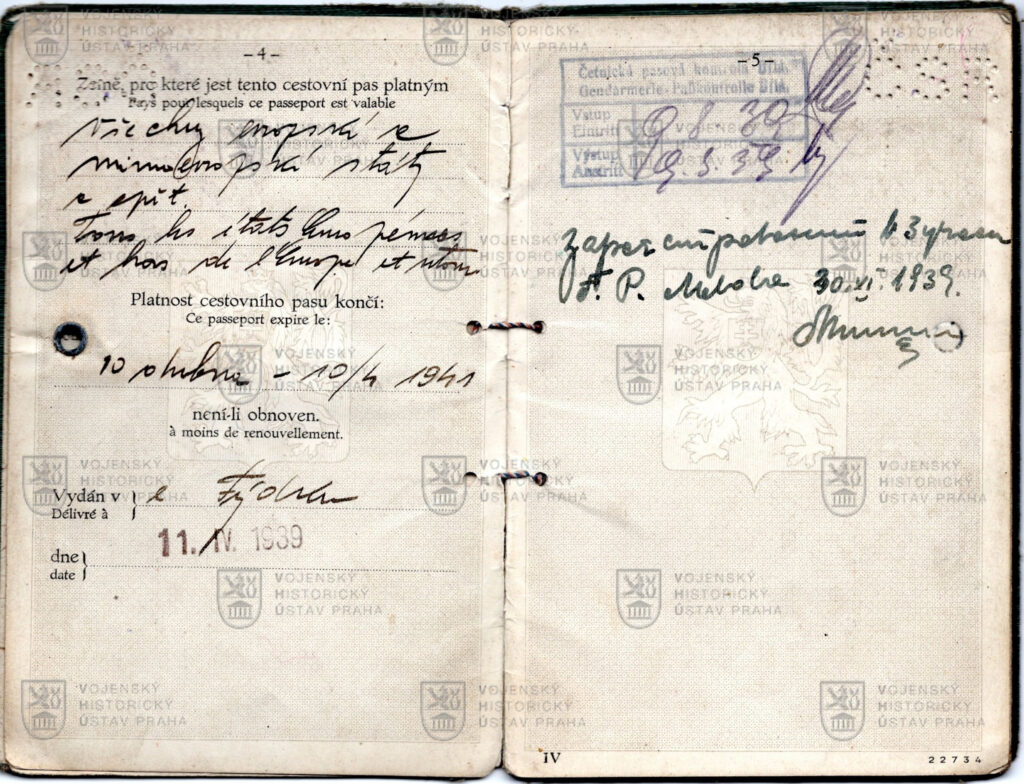 - 4 -
Země, pro které jest tento cestovní pas platným
Pays pour lesquels ce passeport est valable
všechny evropské a
mimoevropské státy
a zpět.
Tous les états Européens
et hors de l'Europe et retour
Platnost cestovního pasu končí:
Ce passeport expire le:
10 dubna - 10/4 1941
není-li obnoven.
à moins de renouvellement.
Vydán v
Délivré à
Frýdku
dne
date
11. IV. 1939
- 5 -
Četnická pasová kontrola Bílá.
Gendarmerie-Paßkontrolle Bílá.
Vstup
Eintritt
9. 8. 39
Výstup
Austritt
30. XI. 1939.
IV
22734
VOJENSKÝ
HISTORICKÝ
ÚSTAV PRAHA